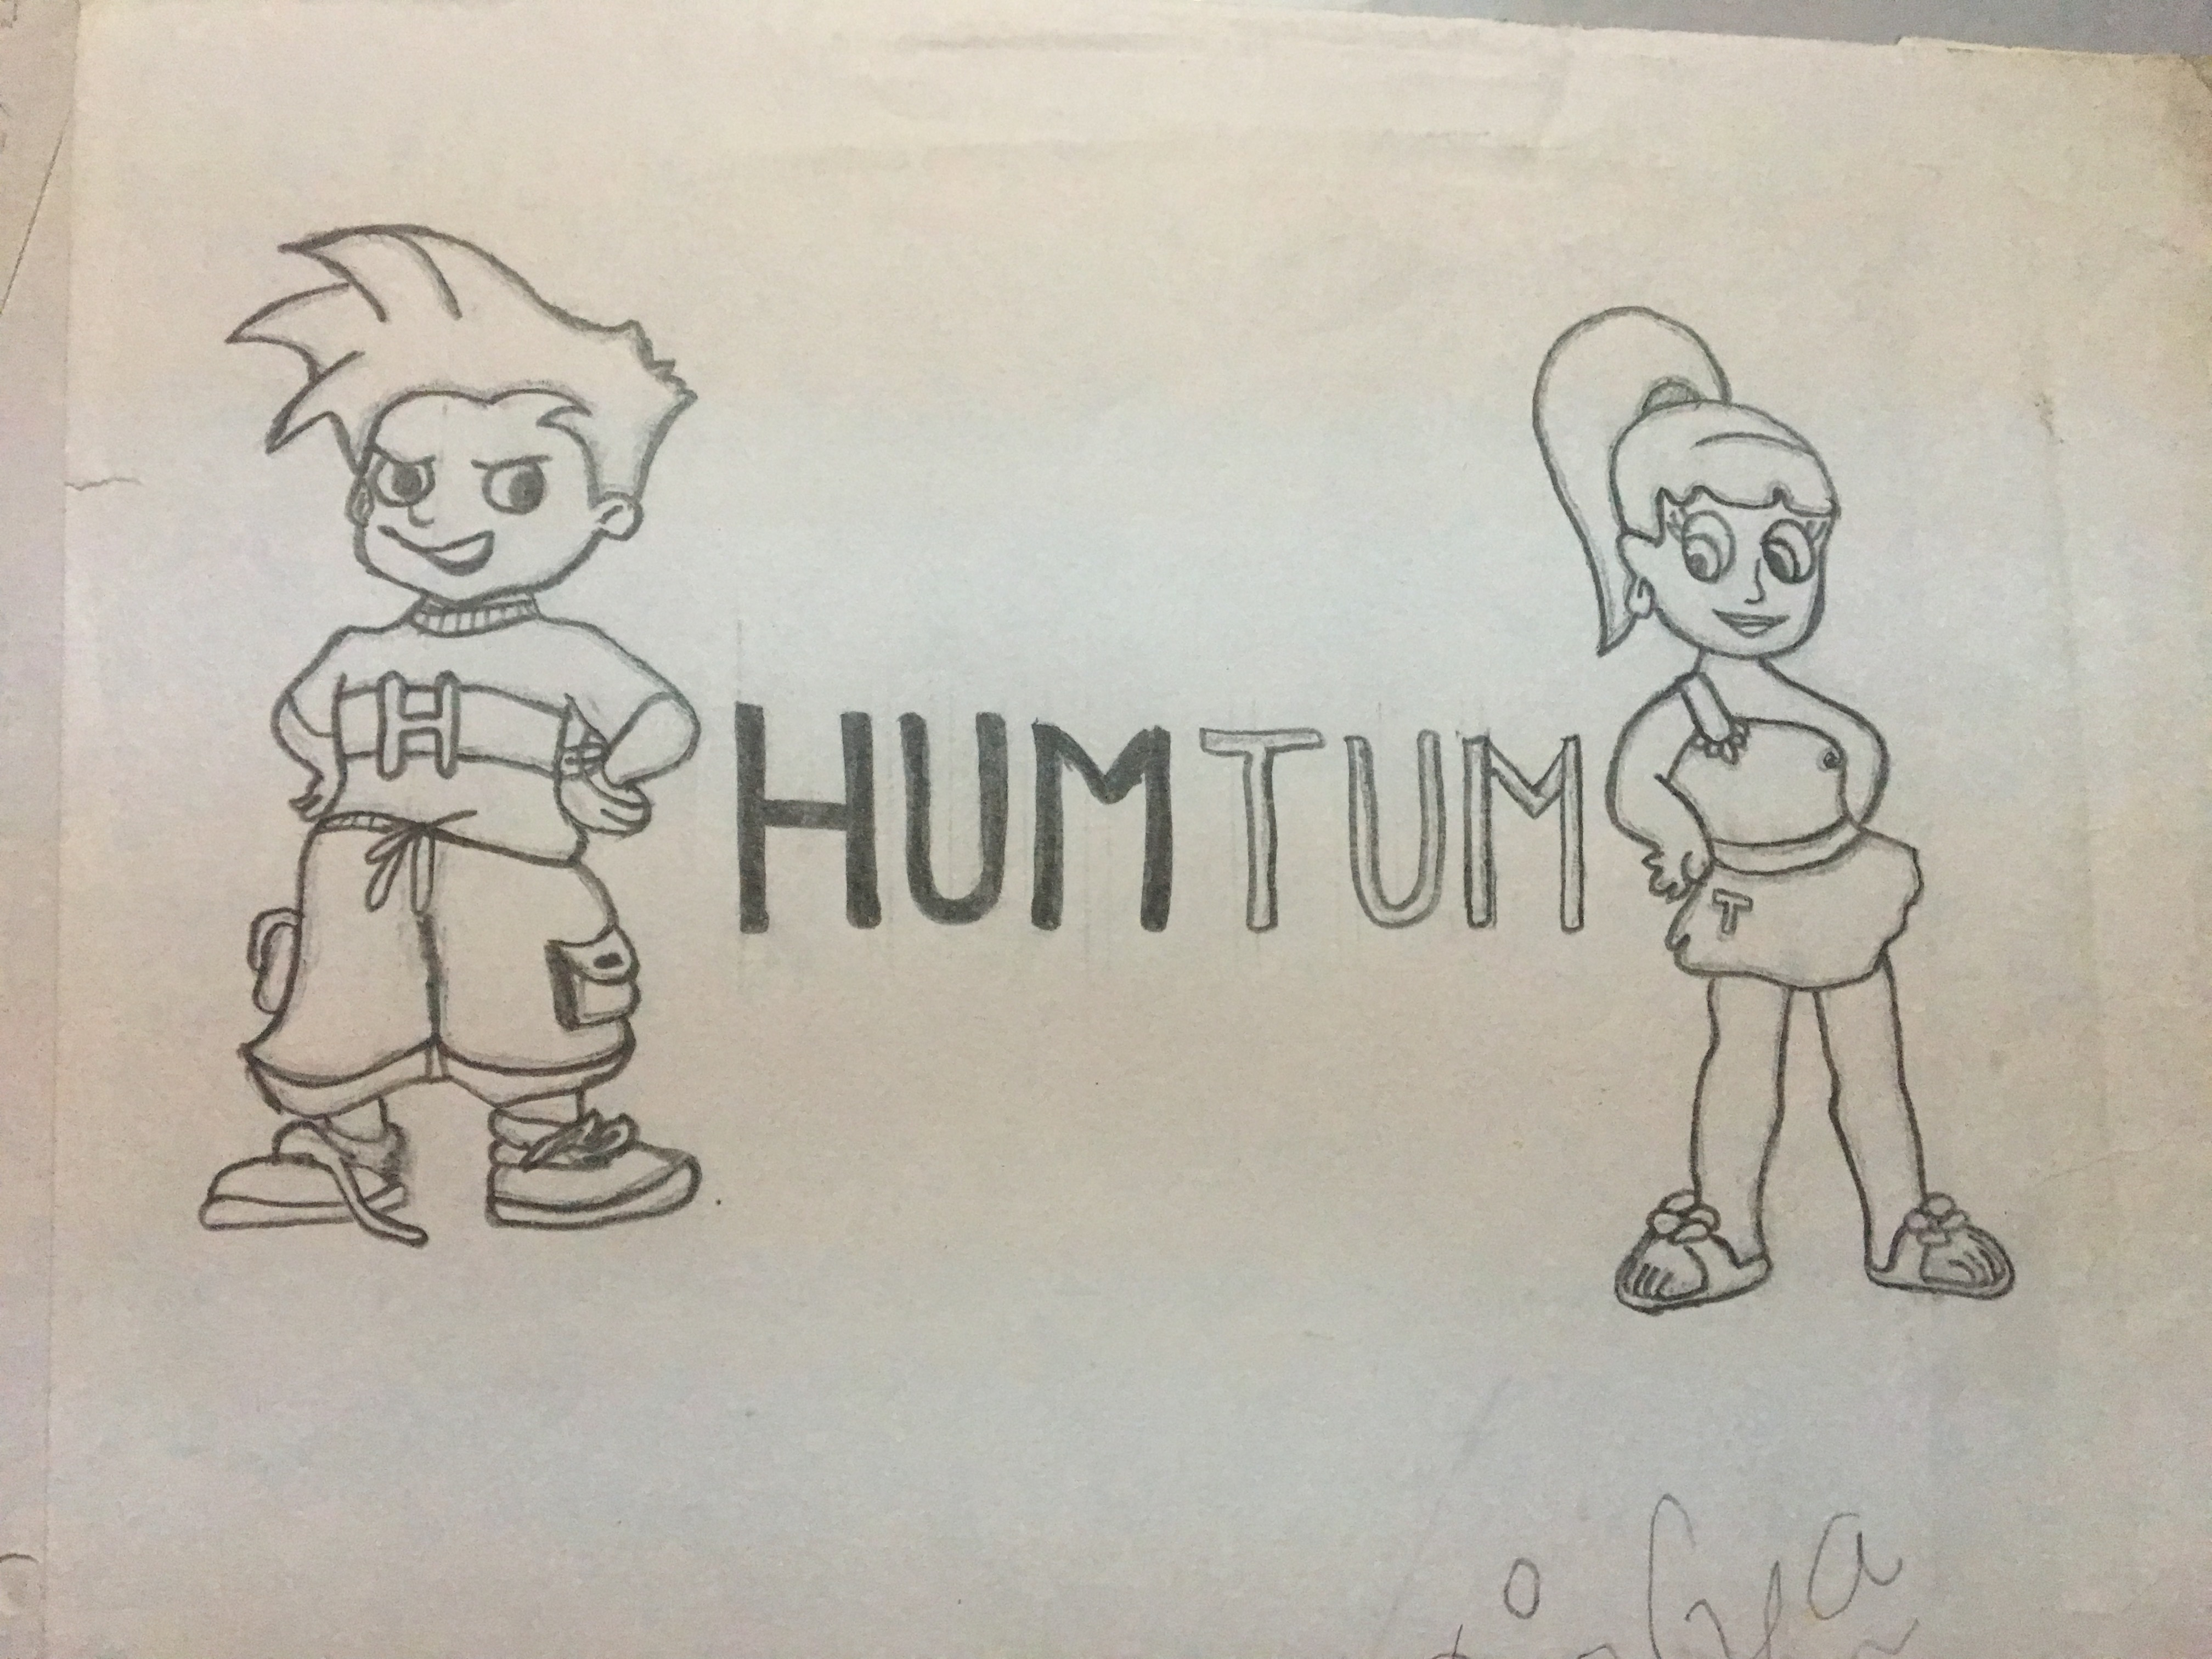 H
HUMTUM
T